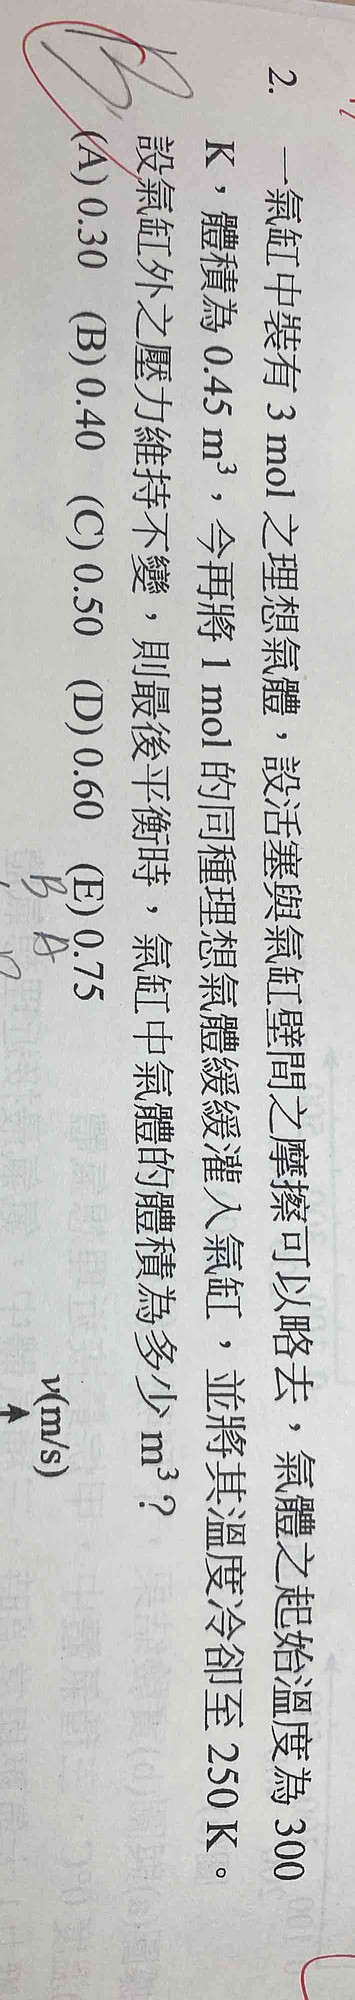 2. 一氣缸中裝有 3 mol 之理想氣體，設活塞與氣缸壁間之摩擦可以略去，氣體之起始溫度為 300
K，體積為 0.45 m³，今再將 1 mol 的同種理想氣體緩緩灌入氣缸，並將其溫度冷卻至 250 K。
設氣缸外之壓力維持不變，則最後平衡時，氣缸中氣體的體積為多少 m³？
(A) 0.30 (B) 0.40 (C) 0.50 (D) 0.60 (E) 0.75
B
B A
v(m/s)